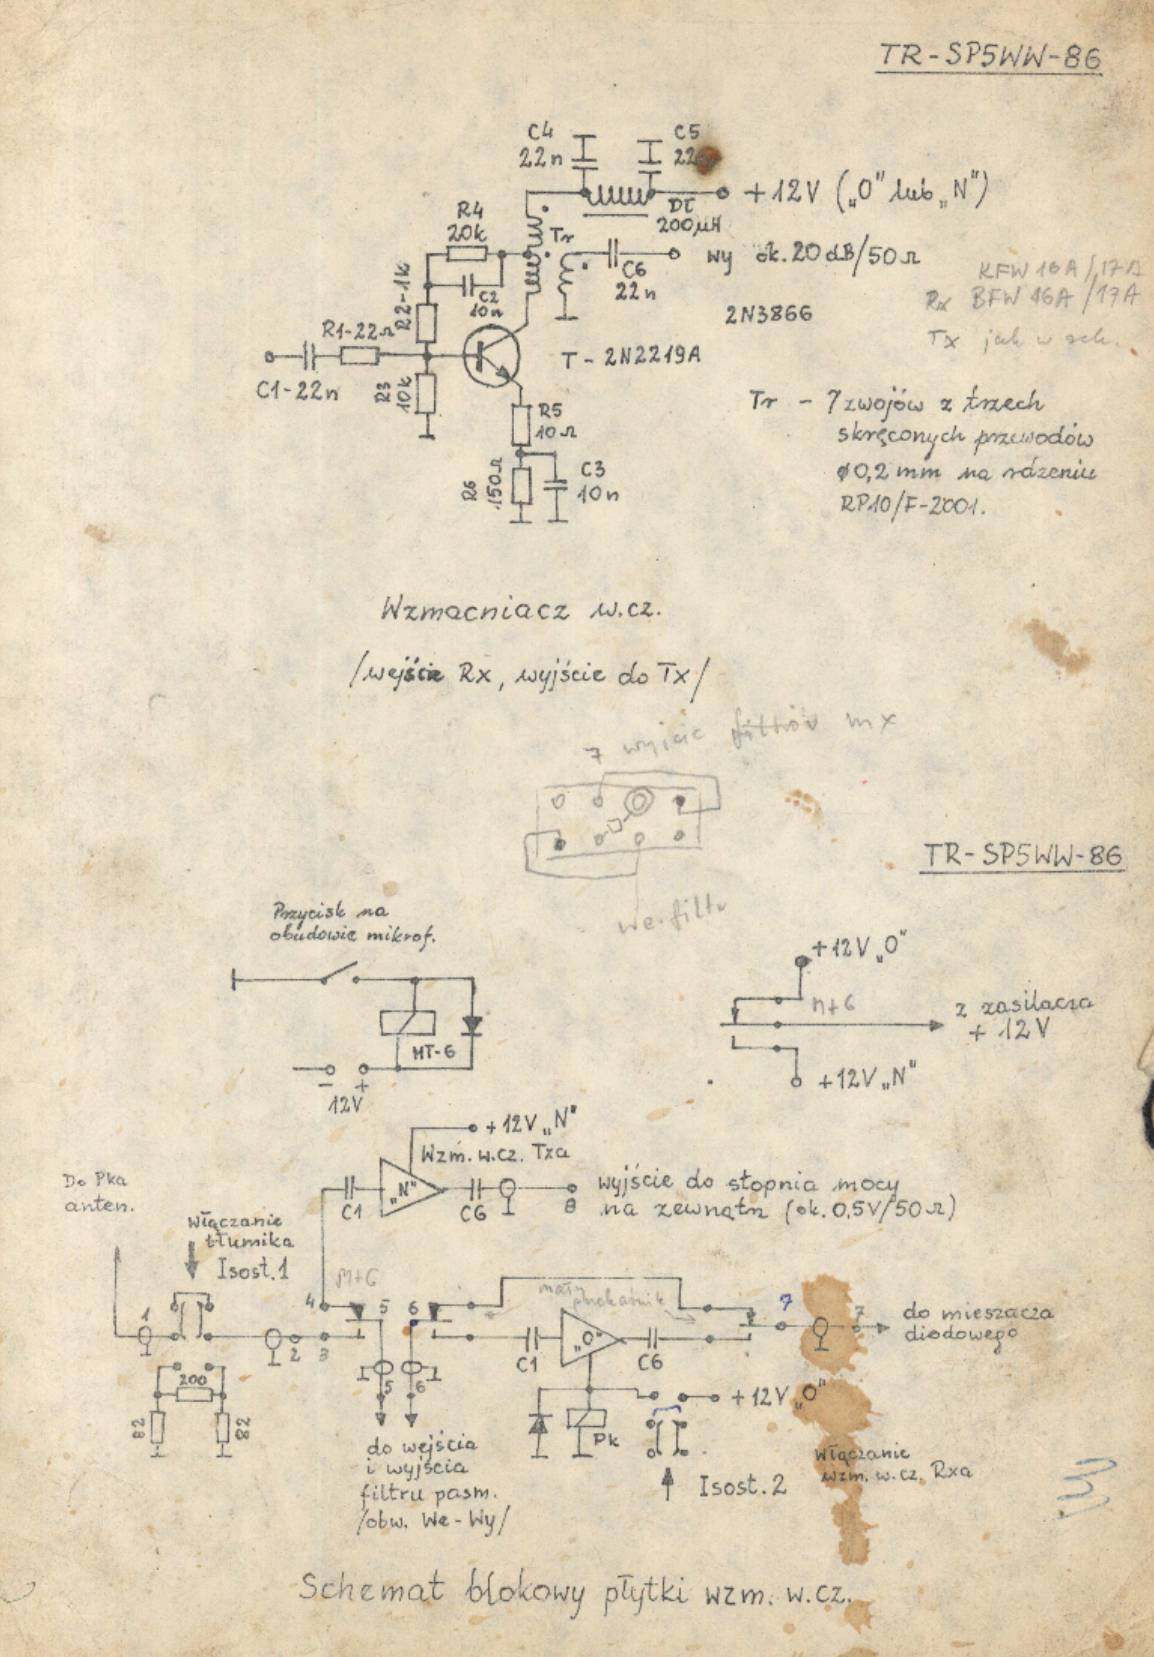 TR-SP5WW-86
C4
22n
C5
+12V („O" lub „N")
Dł
200µH
R4
20k
Tr
C6
22n
wy ok. 20 dB/50Ω
C2
10n
R2-1k
R1-22Ω
C1-22n
R3
10k
2N3866
KFW 16A/17A
Rx BFW 16A/17A
Tx jak w sch.
T - 2N2219A
R5
10Ω
R6
150Ω
C3
10n
Tr - 7 zwojów z trzech
skręconych przewodów
ø0,2 mm na rdzeniu
RP10/F-2001.
Wzmacniacz w.cz.
/wejście Rx, wyjście do Tx/
7 wyjście filtrów mx
we. filtr
TR-SP5WW-86
Przycisk na
obudowie mikrof.
MT-6
- +
12V
+12V „O"
Mt6
z zasilacza
+ 12V
+12V „N"
+12V „N"
Wzm. w.cz. Txa
„N"
C1
C6
8
wyjście do stopnia mocy
na zewnątrz (ok. 0.5V/50Ω)
Do Pka
anten.
Włączanie
tłumika
Isost.1
1
2
3
4
Mt6
5
6
mały przekaźnik
C1
„O"
C6
7
7
do mieszacza
diodowego
200
82
82
5
6
do wejścia
i wyjścia
filtru pasm.
/obw. We-Wy/
Pk
+12V „O"
Isost.2
Włączanie
wzm. w.cz. Rxa
Schemat blokowy płytki wzm. w.cz.